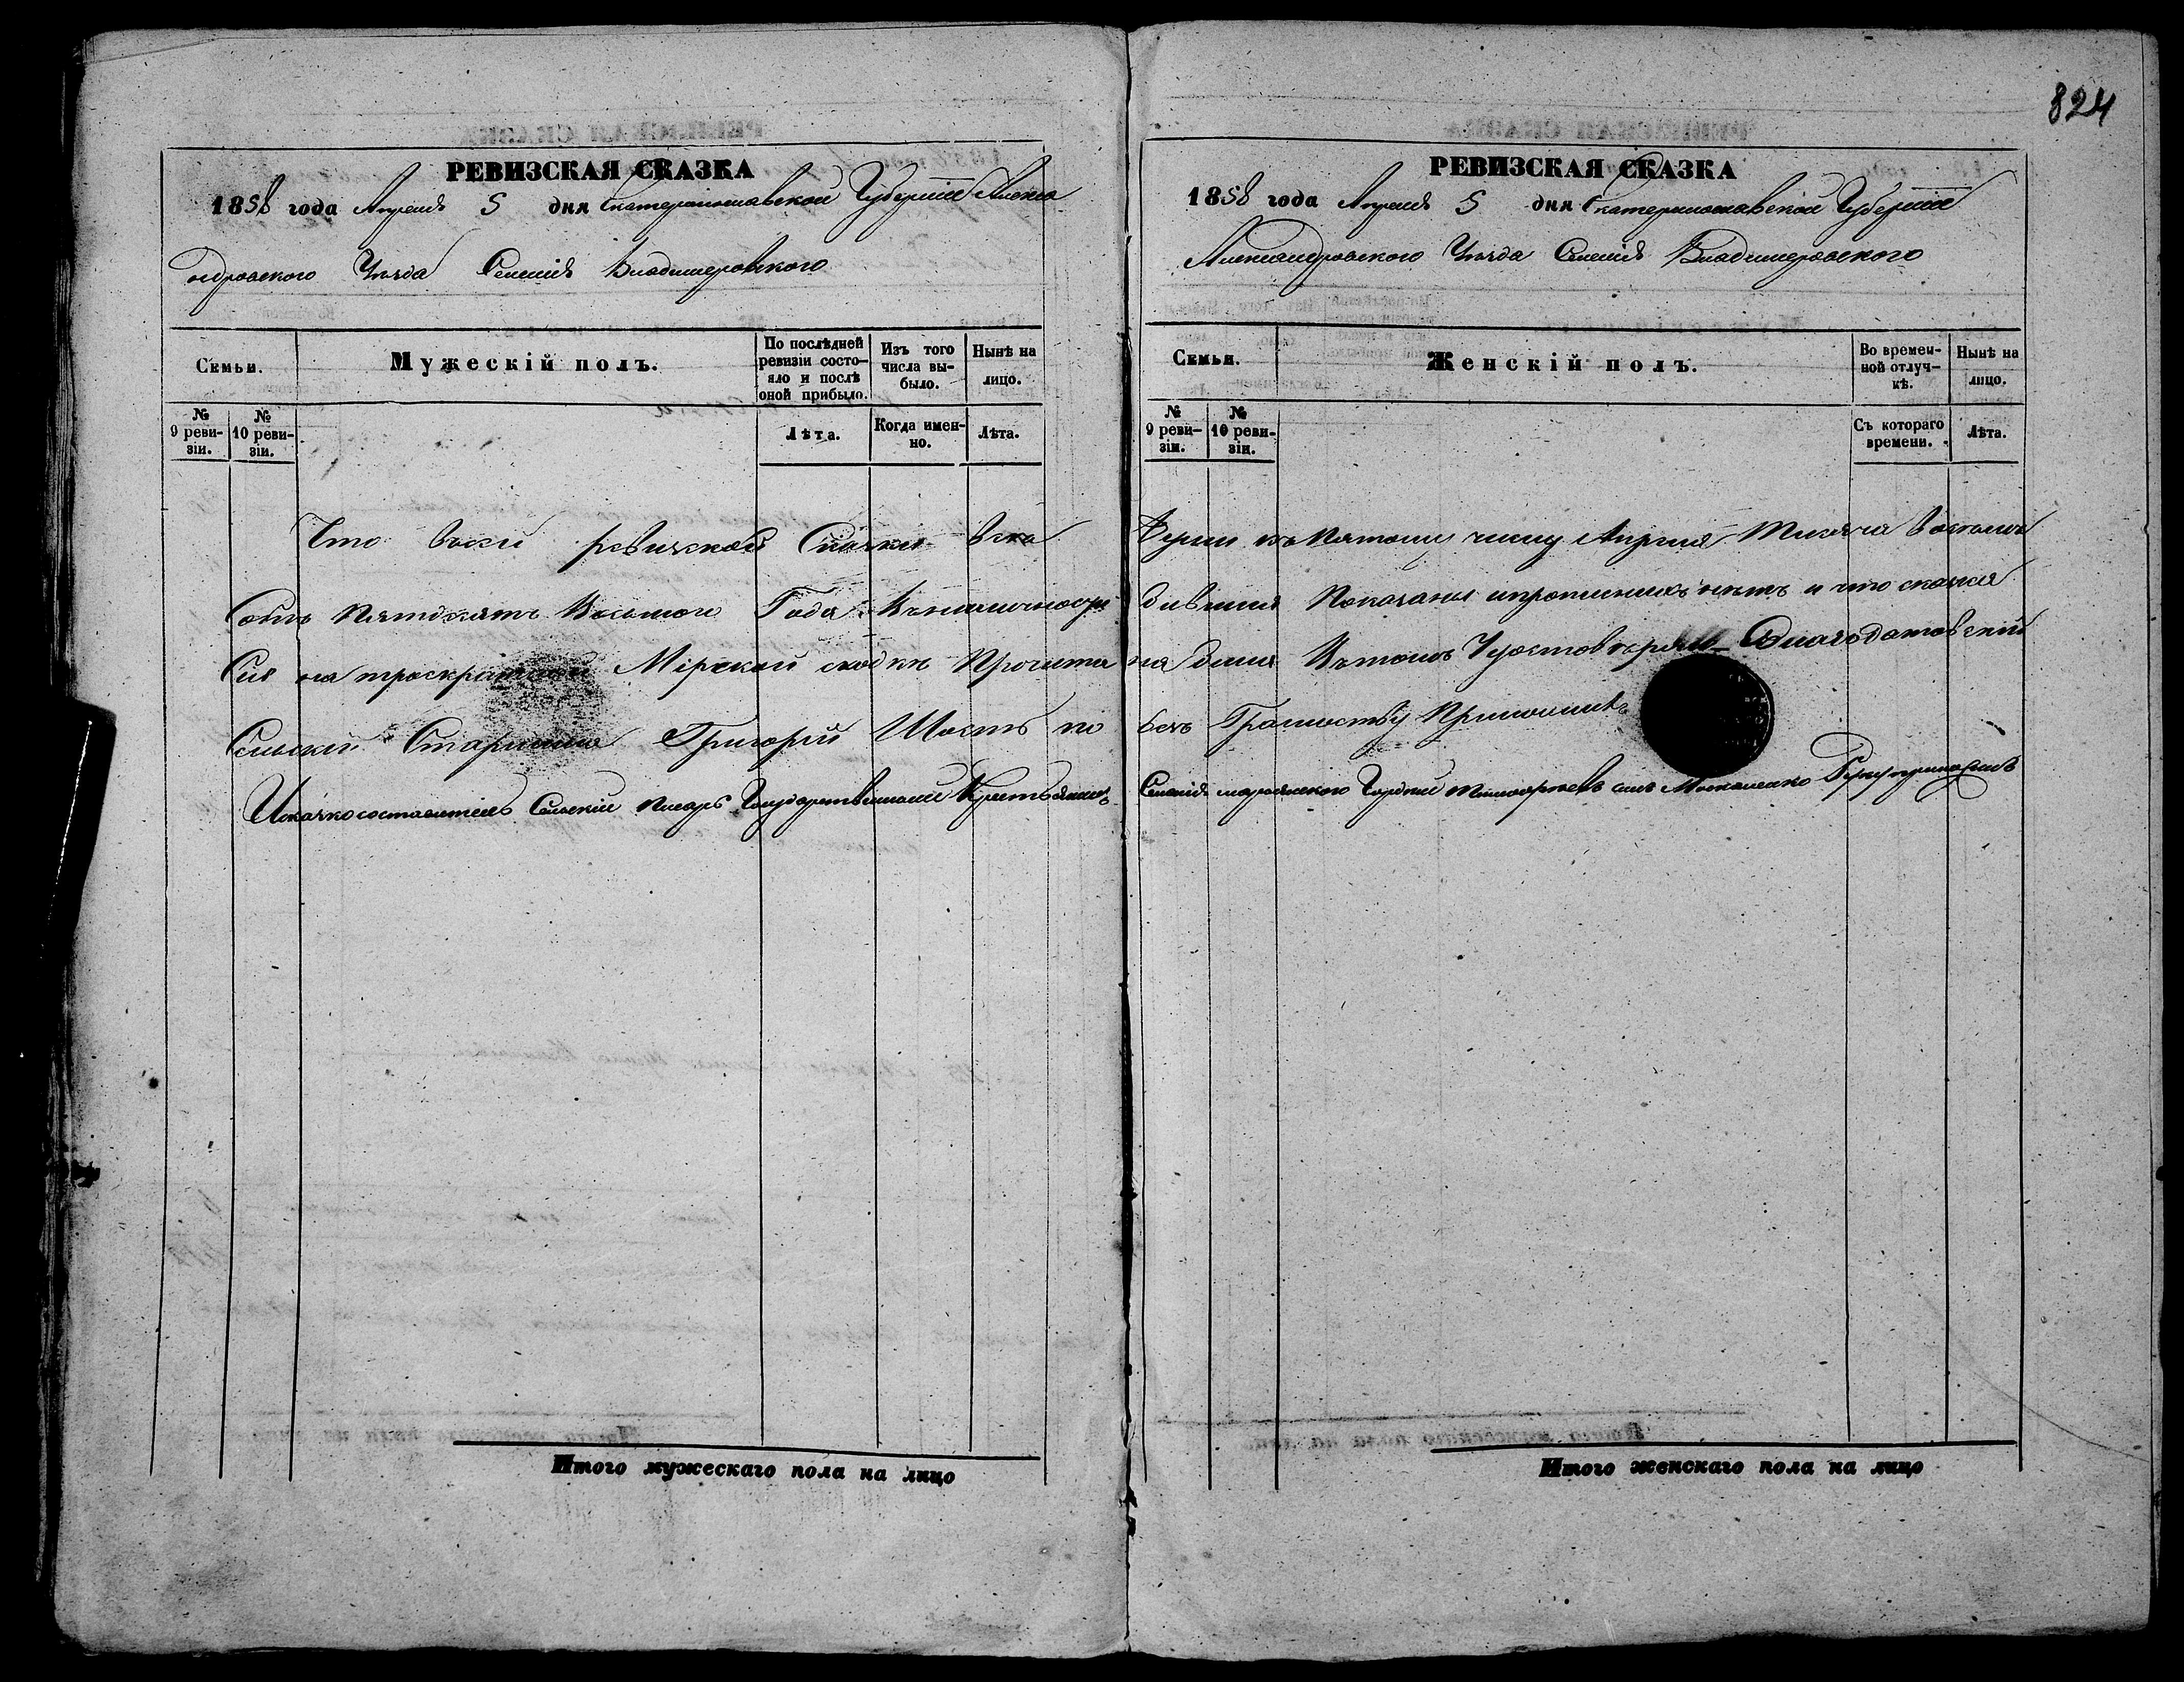 824
РЕВИЗСКАЯ СКАЗКА
1858 года Апреля 5 дня Екатеринославской Губернии Алекса
ндровского Уѣзда Селенія Владимеровского
Семьи.
Мужескій полъ.
По послѣдней ревизіи состояло и послѣ оной прибыло.
Изъ того числа выбыло.
Нынѣ на лицо.
№ 9 ревизіи.
№ 10 ревизіи.
Лѣта.
Когда именно.
Лѣта.
Что всей ревизской Сказки все
Сотъ Пятдесятъ Восмого Года Въналичности
Сія на троекратной Мірской сходкѣ Прочита
Селскій Старшина Григорій Шость по
Сказкосоставитель Селскій Писарь Государственный Крестьянинъ
Итого мужескаго пола на лицо
РЕВИЗСКАЯ СКАЗКА
1858 года Апреля 5 дня Екатеринославской Губерніи
Александровского Уѣзда Селенія Владимеровского
Семьи.
Женскій полъ.
Во временной отлучкѣ.
Нынѣ на лицо.
№ 9 ревизіи.
№ 10 ревизіи.
Съ котораго времени.
Лѣта.
къ Пятому числу Апреля Тисяча Восемь
бившия Показаны ипропиcнихъ нетъ и что сказка
на была Вътомъ Удостоверяю Благодатовскій
безъ Грамотству Приложилъ
Селенія Гордій Тимофеевъ синъ Мокаленко Руку приложилъ
Итого женскаго пола на лицо